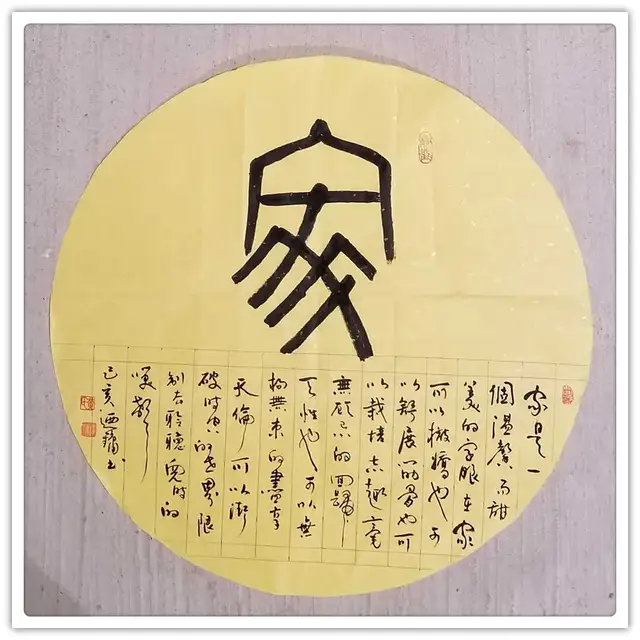 家
家是一
個溫馨而甜
美的字眼在家
可以撒嬌也可
以舒展筋骨也可
以栽培志趣毫
無顧忌的回歸
天性也可以無
拘無束的盡享
天倫可以衝
破時空的世界限
制去聆聽兒時的
聲
己亥書